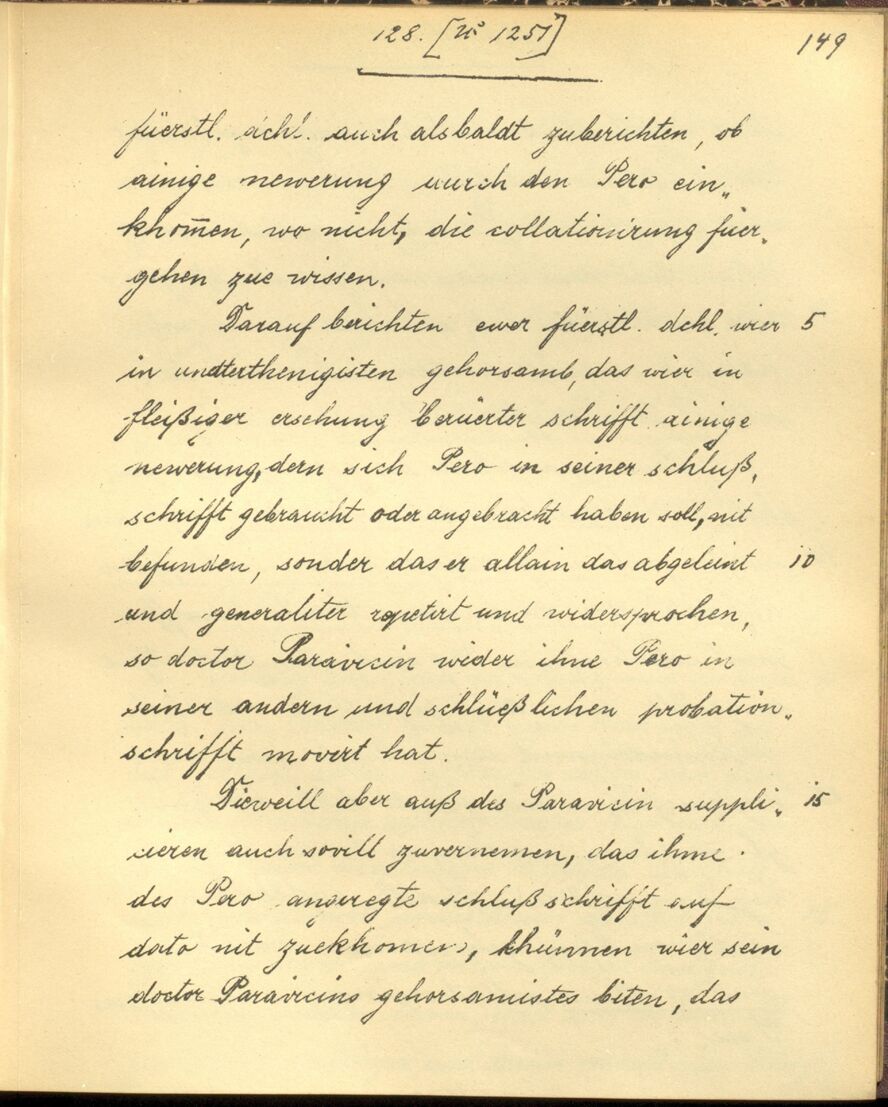 128. [Nº 1251]
149
füerstl. dchl. auch alsbaldt zuberichten, ob
ainige newerung durch den Pero ein„
khom̄en, wo nicht, die collationirung füer„
gehen zue wissen.
Darauf berichten ewer füerstl. dchl. wier 5
in undterthenigisten gehorsamb, das wier in
fleißiger ersehung berüerter schrifft ainige
newerung, dern sich Pero in seiner schluß„
schrifft gebraucht oder angebracht haben soll, nit
befunden, sonder das er allain das abgeleint 10
und generaliter repetirt und widersprochen,
so doctor Paravicin wider ihne Pero in
seiner andern und schlüeßlichen probation„
schrifft movirt hat.
Dieweill aber auß des Paravicin suppli„ 15
cieren auch sovill zuvernemen, das ihme
des Pero angeregte schlußschrifft auf
dato nit zuekhomen, khünnen wier sein
doctor Paravicins gehorsamistes biten, das